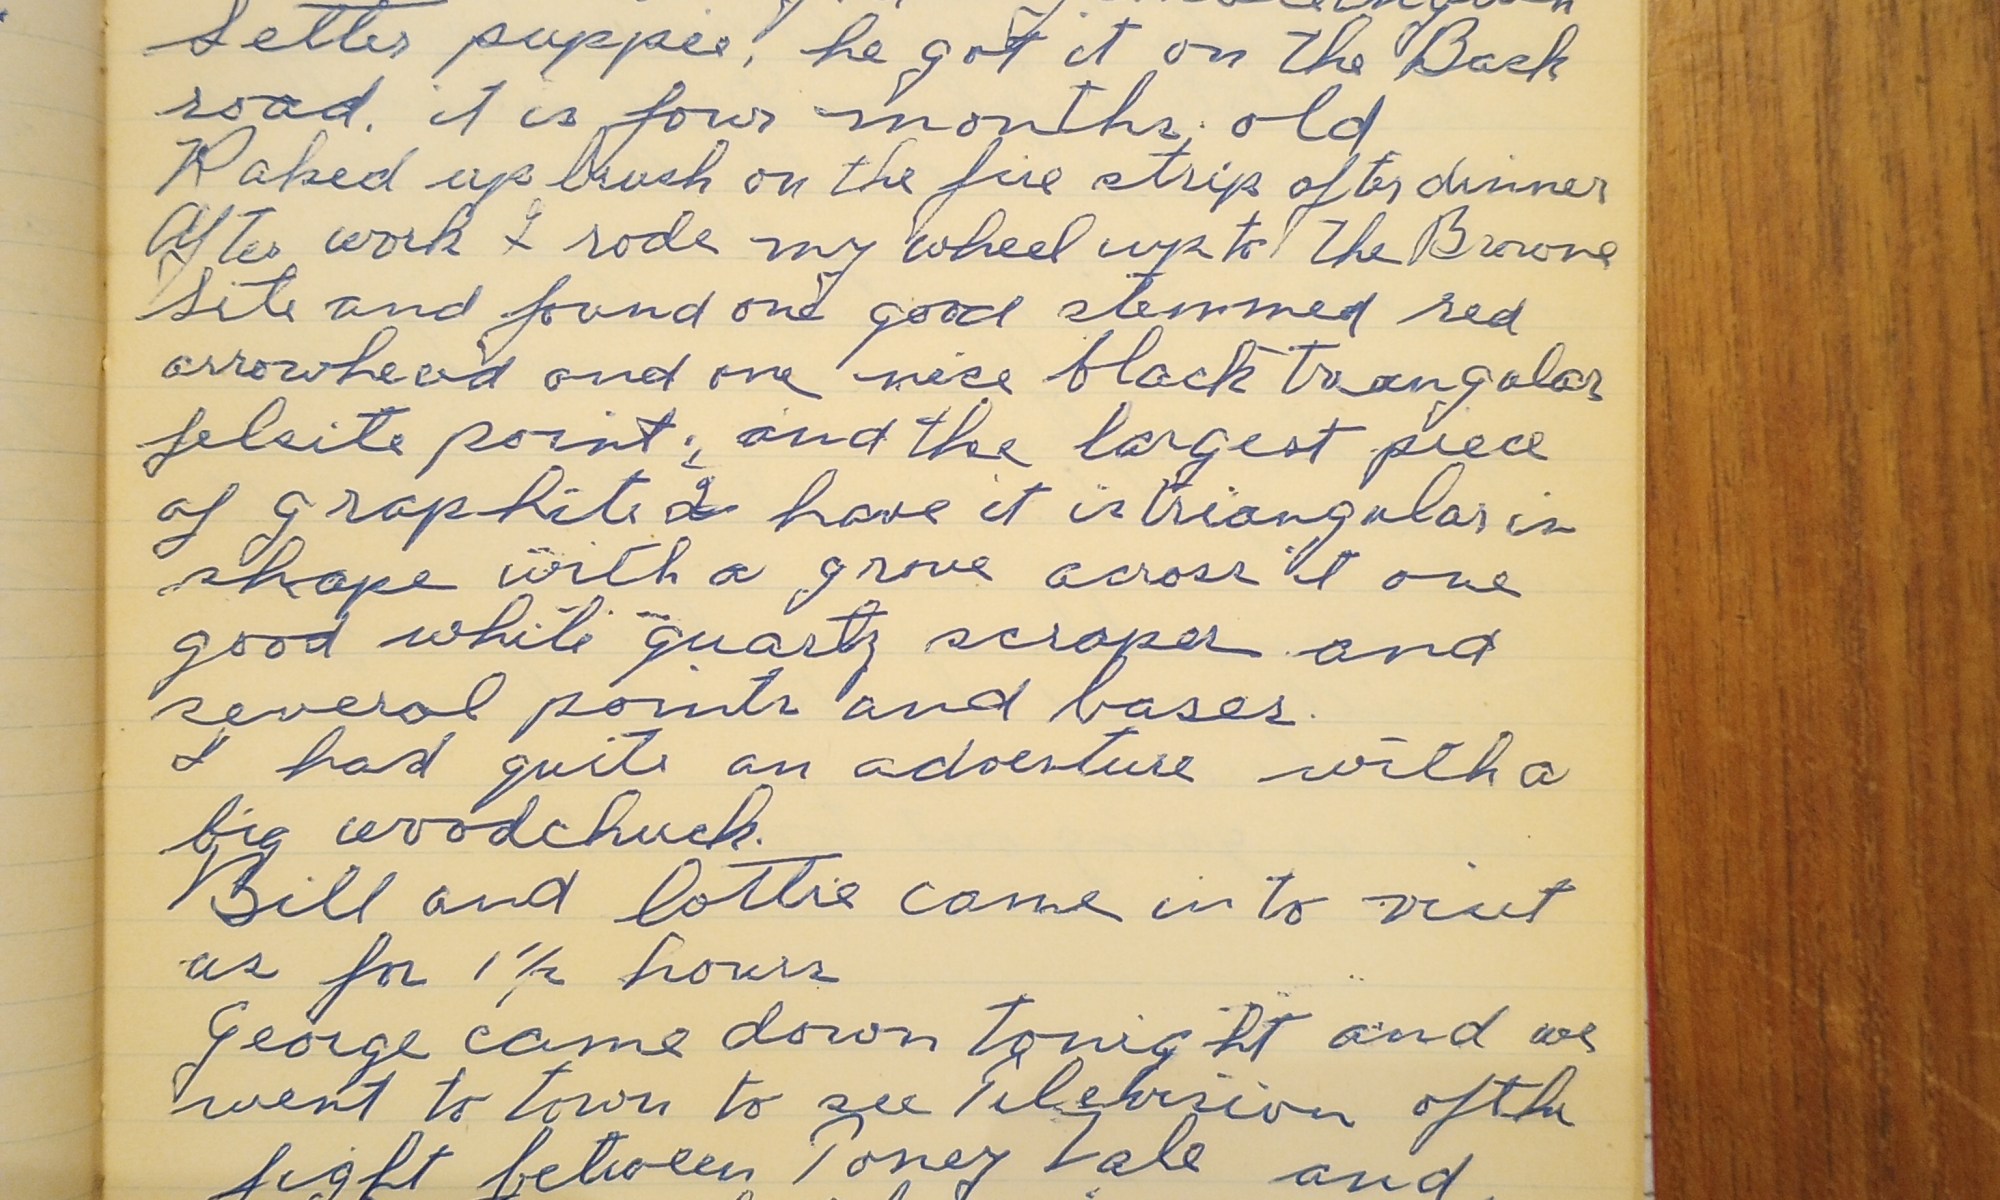 Setter puppie, he got it on the Back
road. it is four months old
Raked up brush on the fire strip after dinner
After work I rode my wheel up to the Browne
Site and found one good stemmed red
arrowhead and one nice black trangular
felsite point, and the largest piece
of graphite I have it is triangular in
shape with a grove across it one
good white quartz scraper and
several points and bases.
I had quite an adventure with a
big woodchuck.
Bill and Lottie came in to visit
us for 1 1/2 hours
George came down tonight and we
went to town to see Television of the
fight between Toney Zale and